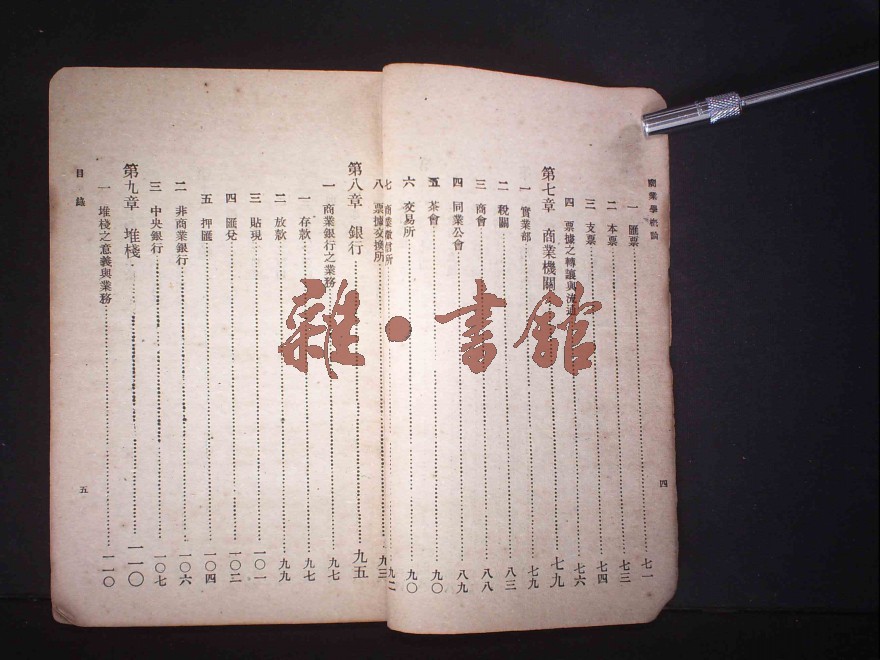 商業學概論
一 匯票 七一
二 本票 七三
三 支票 七四
四 票據之轉讓與流通 七六
第七章 商業機關 七九
一 實業部 七九
二 稅關 八三
三 商會 八八
四 同業公會 八九
五 茶會 九〇
六 交易所 九〇
七 商業徵信所 九二
八 票據交換所 九三
四
第八章 銀行 九五
一 商業銀行之業務 九七
一 存款 九七
二 放款 九九
三 貼現 一〇一
四 匯兌 一〇二
五 押匯 一〇四
二 非商業銀行 一〇六
三 中央銀行 一〇七
第九章 堆棧 一一〇
一 堆棧之意義與業務 一一〇
目錄
五
雜·書館